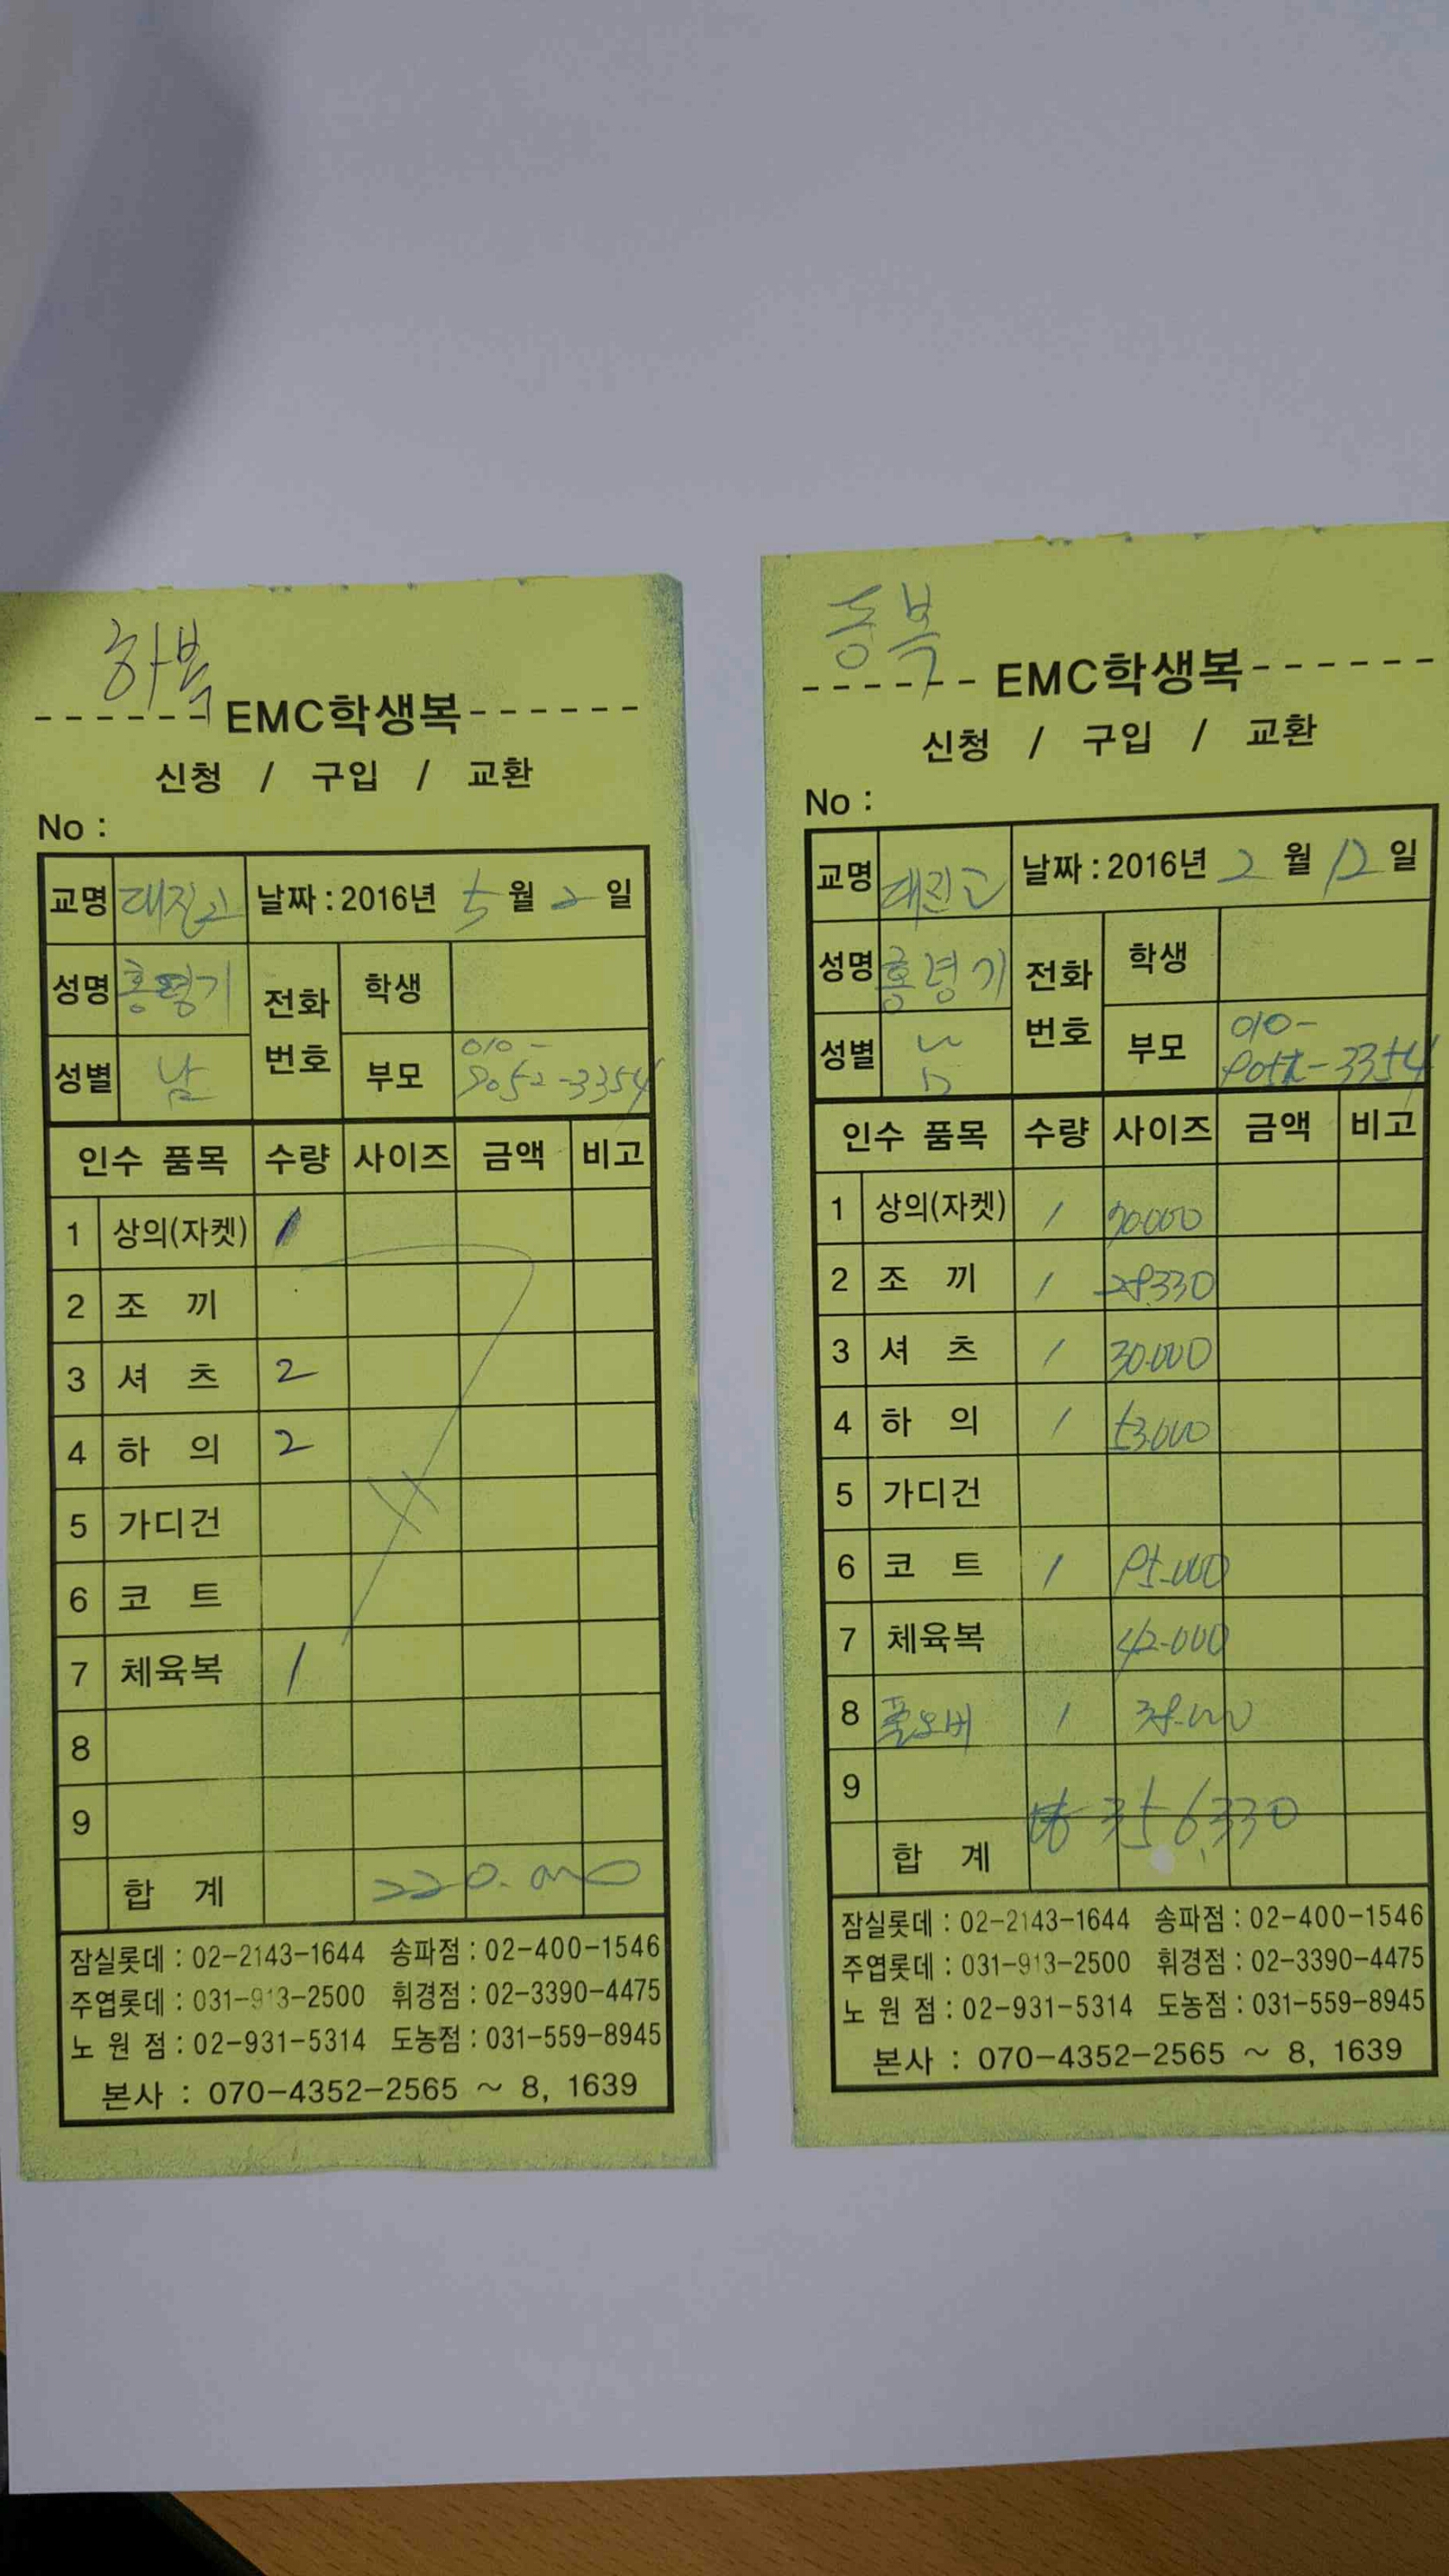 하복
EMC학생복
신청 / 구입 / 교환
No :
교명 대진고 날짜 : 2016년 5 월 2 일
성명 홍령기 전화 번호 학생
성별 남 부모 010-
9052-3354
인수 품목 수량 사이즈 금액 비고
1 상의(자켓) 1
2 조 끼
3 셔 츠 2
4 하 의 2
5 가디건
6 코 트
7 체육복 1
8
9
합 계 220.000
잠실롯데 : 02-2143-1644 송파점 : 02-400-1546
주엽롯데 : 031-913-2500 휘경점 : 02-3390-4475
노 원 점 : 02-931-5314 도농점 : 031-559-8945
본사 : 070-4352-2565 ~ 8, 1639
동복
EMC학생복
신청 / 구입 / 교환
No :
교명 대진고 날짜 : 2016년 2 월 12 일
성명 홍령기 전화 번호 학생
성별 남 부모 010-
9052-3354
인수 품목 수량 사이즈 금액 비고
1 상의(자켓) 1 70000
2 조 끼 1 28.330
3 셔 츠 1 30.000
4 하 의 1 53.000
5 가디건
6 코 트 1 95.000
7 체육복 42.000
8 풀오버 1 38.000
9
합 계 356,330
잠실롯데 : 02-2143-1644 송파점 : 02-400-1546
주엽롯데 : 031-913-2500 휘경점 : 02-3390-4475
노 원 점 : 02-931-5314 도농점 : 031-559-8945
본사 : 070-4352-2565 ~ 8, 1639